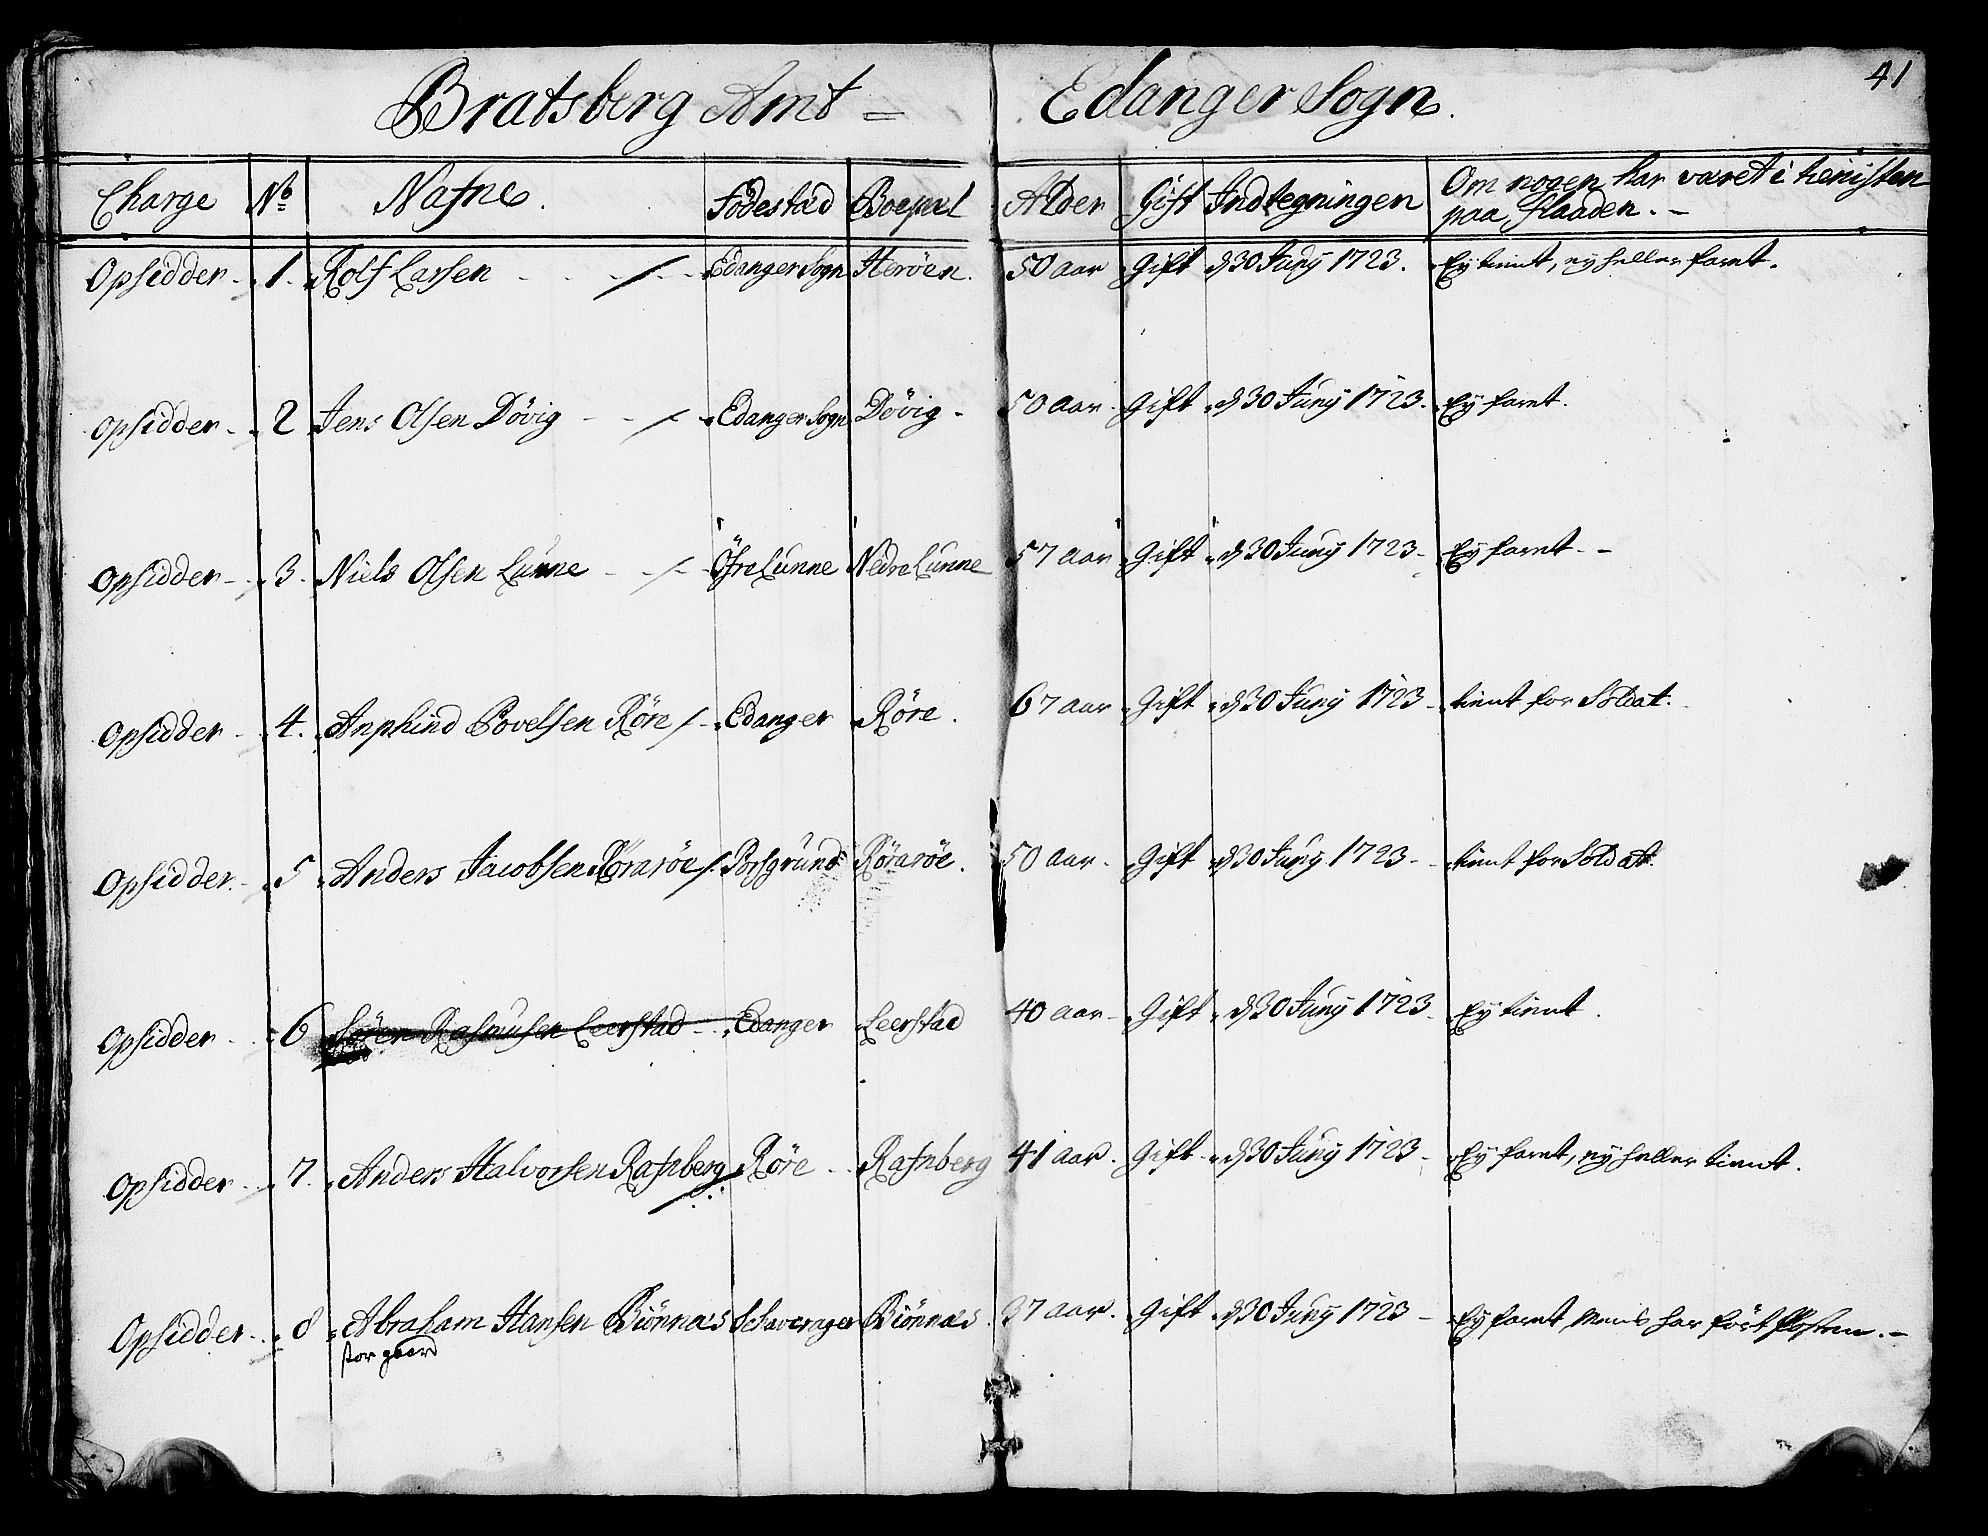 41
Bratsberg Amt = Edanger Sogn.
Charge No Nafne. Födestæd Boepæl Alder Gift Indtegningen Om nogen har været i tienisten
paa flaaden. -
Opsidder - 1. Rolf Larsen - Edanger Sogn Heröen. 50 aar Gift d 30 Junÿ 1723. Eÿ tient, eÿ heller faret.
Opsidder - 2 Jens Olsen Dövig - Edanger Sogn Dövig - 50 aar. Gift d 30 Junÿ 1723. Eÿ faret.
Opsidder - 3. Niels Olsen Lunne - Öfre Lunne Nedre Lunne 57 aar Gift d 30 Junÿ 1723 - Eÿ faret - -
Opsidder - 4. Anphind Povelsen Röre - Edanger Röre. 67 aar Gift d 30 Junÿ 1723 - tient for Soldat.
Opsidder - 5 Anders Jacobsen Röraröe Porsgrund Röraröe. 50 aar. Gift d 30 Junÿ 1723 - tient for Soldat.
Opsidder - 6 Sören Rasmusen Leerstad - Edanger Leerstad 40 aar - Gift d 30 Junÿ 1723 - Eÿ tient.
Opsidder - 7. Anders Halvorsen Rafnberg Röre - Rafnberg 41 aar. Gift - d 30 Junÿ 1723 - Eÿ faret, eÿ heller tient.
Opsidder - 8 Abraham Hansen Biönnes Schavanger Biönnes. 37 aar. Gift d 30 Junÿ 1723 - Eÿ faret, mens har fört Posten. -
stor gaard